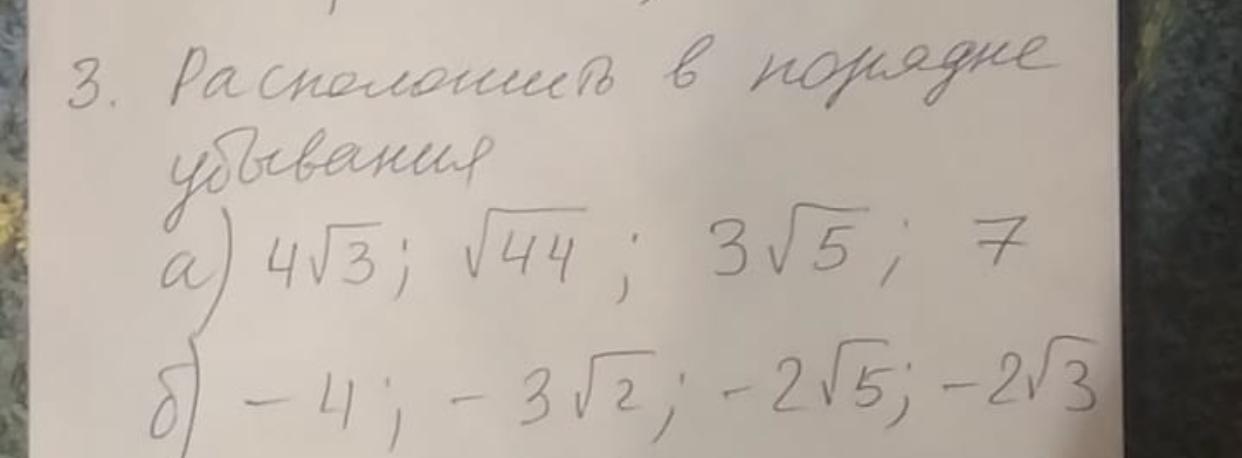 3. Расположить в порядке
убывания
а) 4√3; √44; 3√5; 7
б) -4; -3√2; -2√5; -2√3